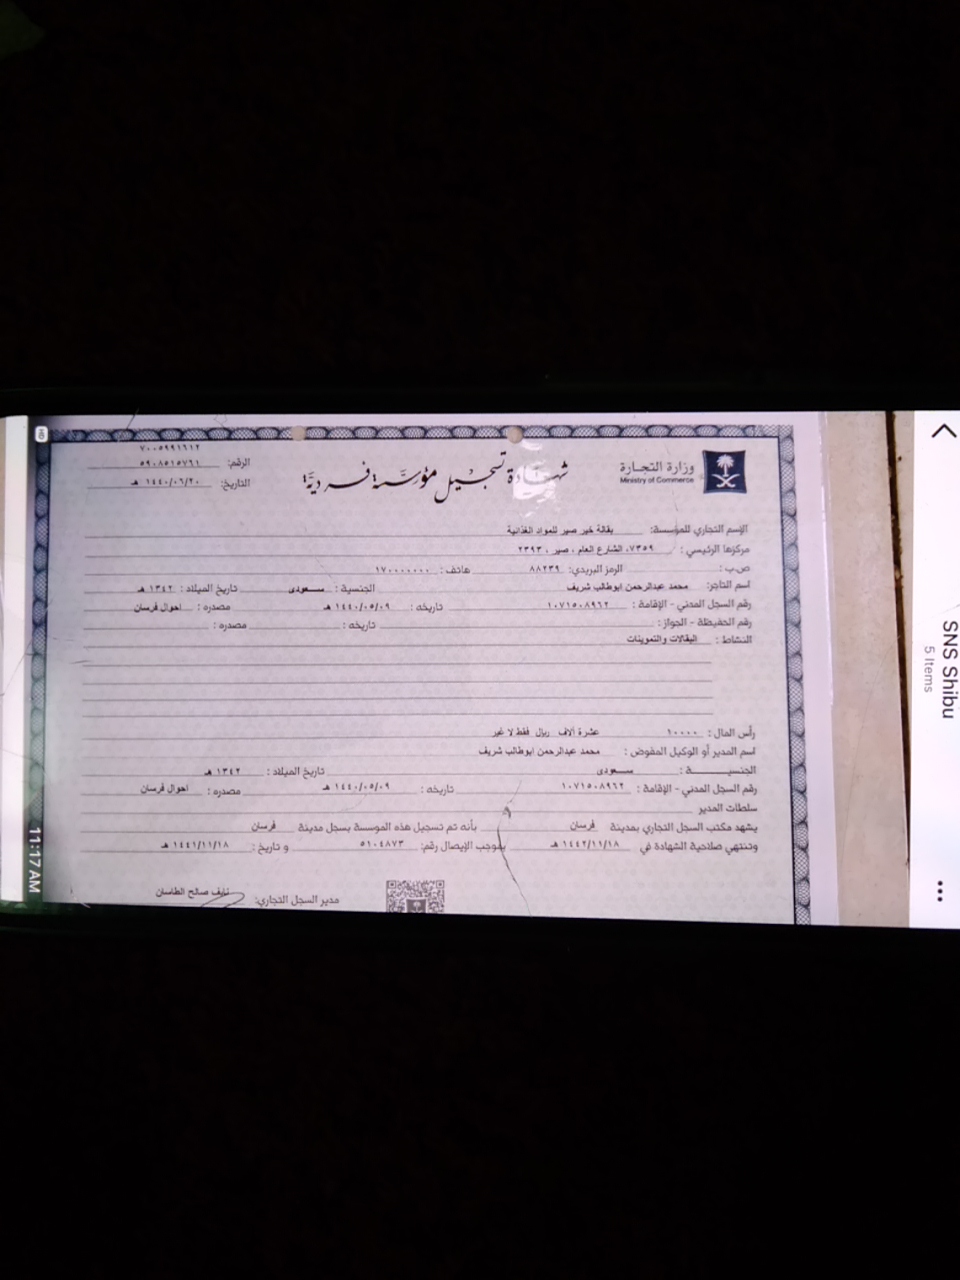 وزارة التجارة
Ministry of Commerce
شهادة تسجيل مؤسسة فردية
٧٠٠٥٩٩١٦١٢
الرقم: ٥٩٠٨٥١٥٧٦١
التاريخ: ١٤٤٠/٠٦/٢٠ هـ
الإسم التجاري للمؤسسة: بقالة خير صير للمواد الغذائية
مركزها الرئيسي: ٧٣٥٩، الشارع العام، صير، ٢٣٩٣
ص.ب: الرمز البريدي: ٨٨٢٣٩ هاتف: ١٧٠٠٠٠٠٠٠
اسم التاجر: محمد عبدالرحمن ابوطالب شريف الجنسية: سعودى تاريخ الميلاد: ١٣٤٢ هـ
رقم السجل المدني - الإقامة: ١٠٧١٥٠٨٩٦٢ تاريخه: ١٤٤٠/٠٥/٠٩ هـ مصدره: احوال فرسان
رقم الحفيظة - الجواز: تاريخه: مصدره:
النشاط: البقالات والتموينات
رأس المال: ١٠٠٠٠ عشرة آلاف ريال فقط لا غير
اسم المدير أو الوكيل المفوض: محمد عبدالرحمن ابوطالب شريف
الجنسية: سعودى تاريخ الميلاد: ١٣٤٢ هـ
رقم السجل المدني - الإقامة: ١٠٧١٥٠٨٩٦٢ تاريخه: ١٤٤٠/٠٥/٠٩ هـ مصدره: احوال فرسان
سلطات المدير
يشهد مكتب السجل التجاري بمدينة فرسان بأنه تم تسجيل هذه الموسسة بسجل مدينة فرسان
وتنتهي صلاحية الشهادة في ١٤٤٢/١١/١٨ هـ بموجب الإيصال رقم: ٥١٠٤٨٧٣ و تاريخ: ١٤٤١/١١/١٨ هـ
مدير السجل التجاري: نايف صالح الطاسان
SNS Shibu
5 Items
11:17 AM
HD